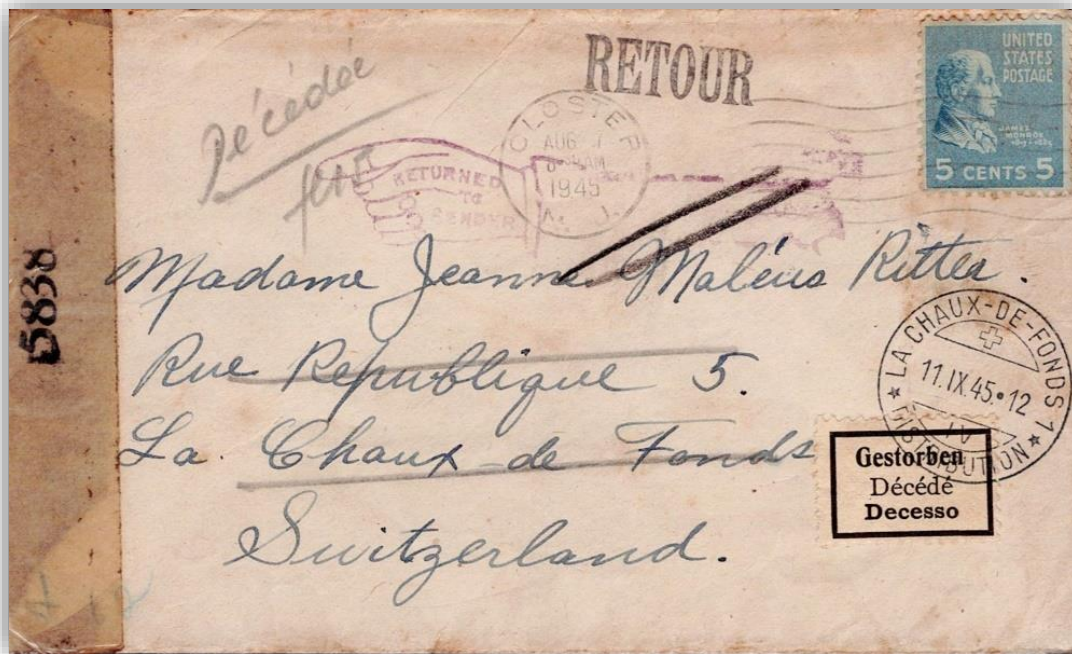 RETOUR
Décédée
UNITED
STATES
POSTAGE
JAMES
MONROE
5 CENTS 5
CLOSTER
AUG 7
AM
1945
N. J.
RETURNED
TO
SENDER
5838
Madame Jeanne Maléus Ritter.
Rue Republique 5.
La Chaux-de Fonds
Switzerland.
LA CHAUX-DE-FONDS 1
11.IX.45.12
DISTRIBUTION
Gestorben
Décédé
Decesso